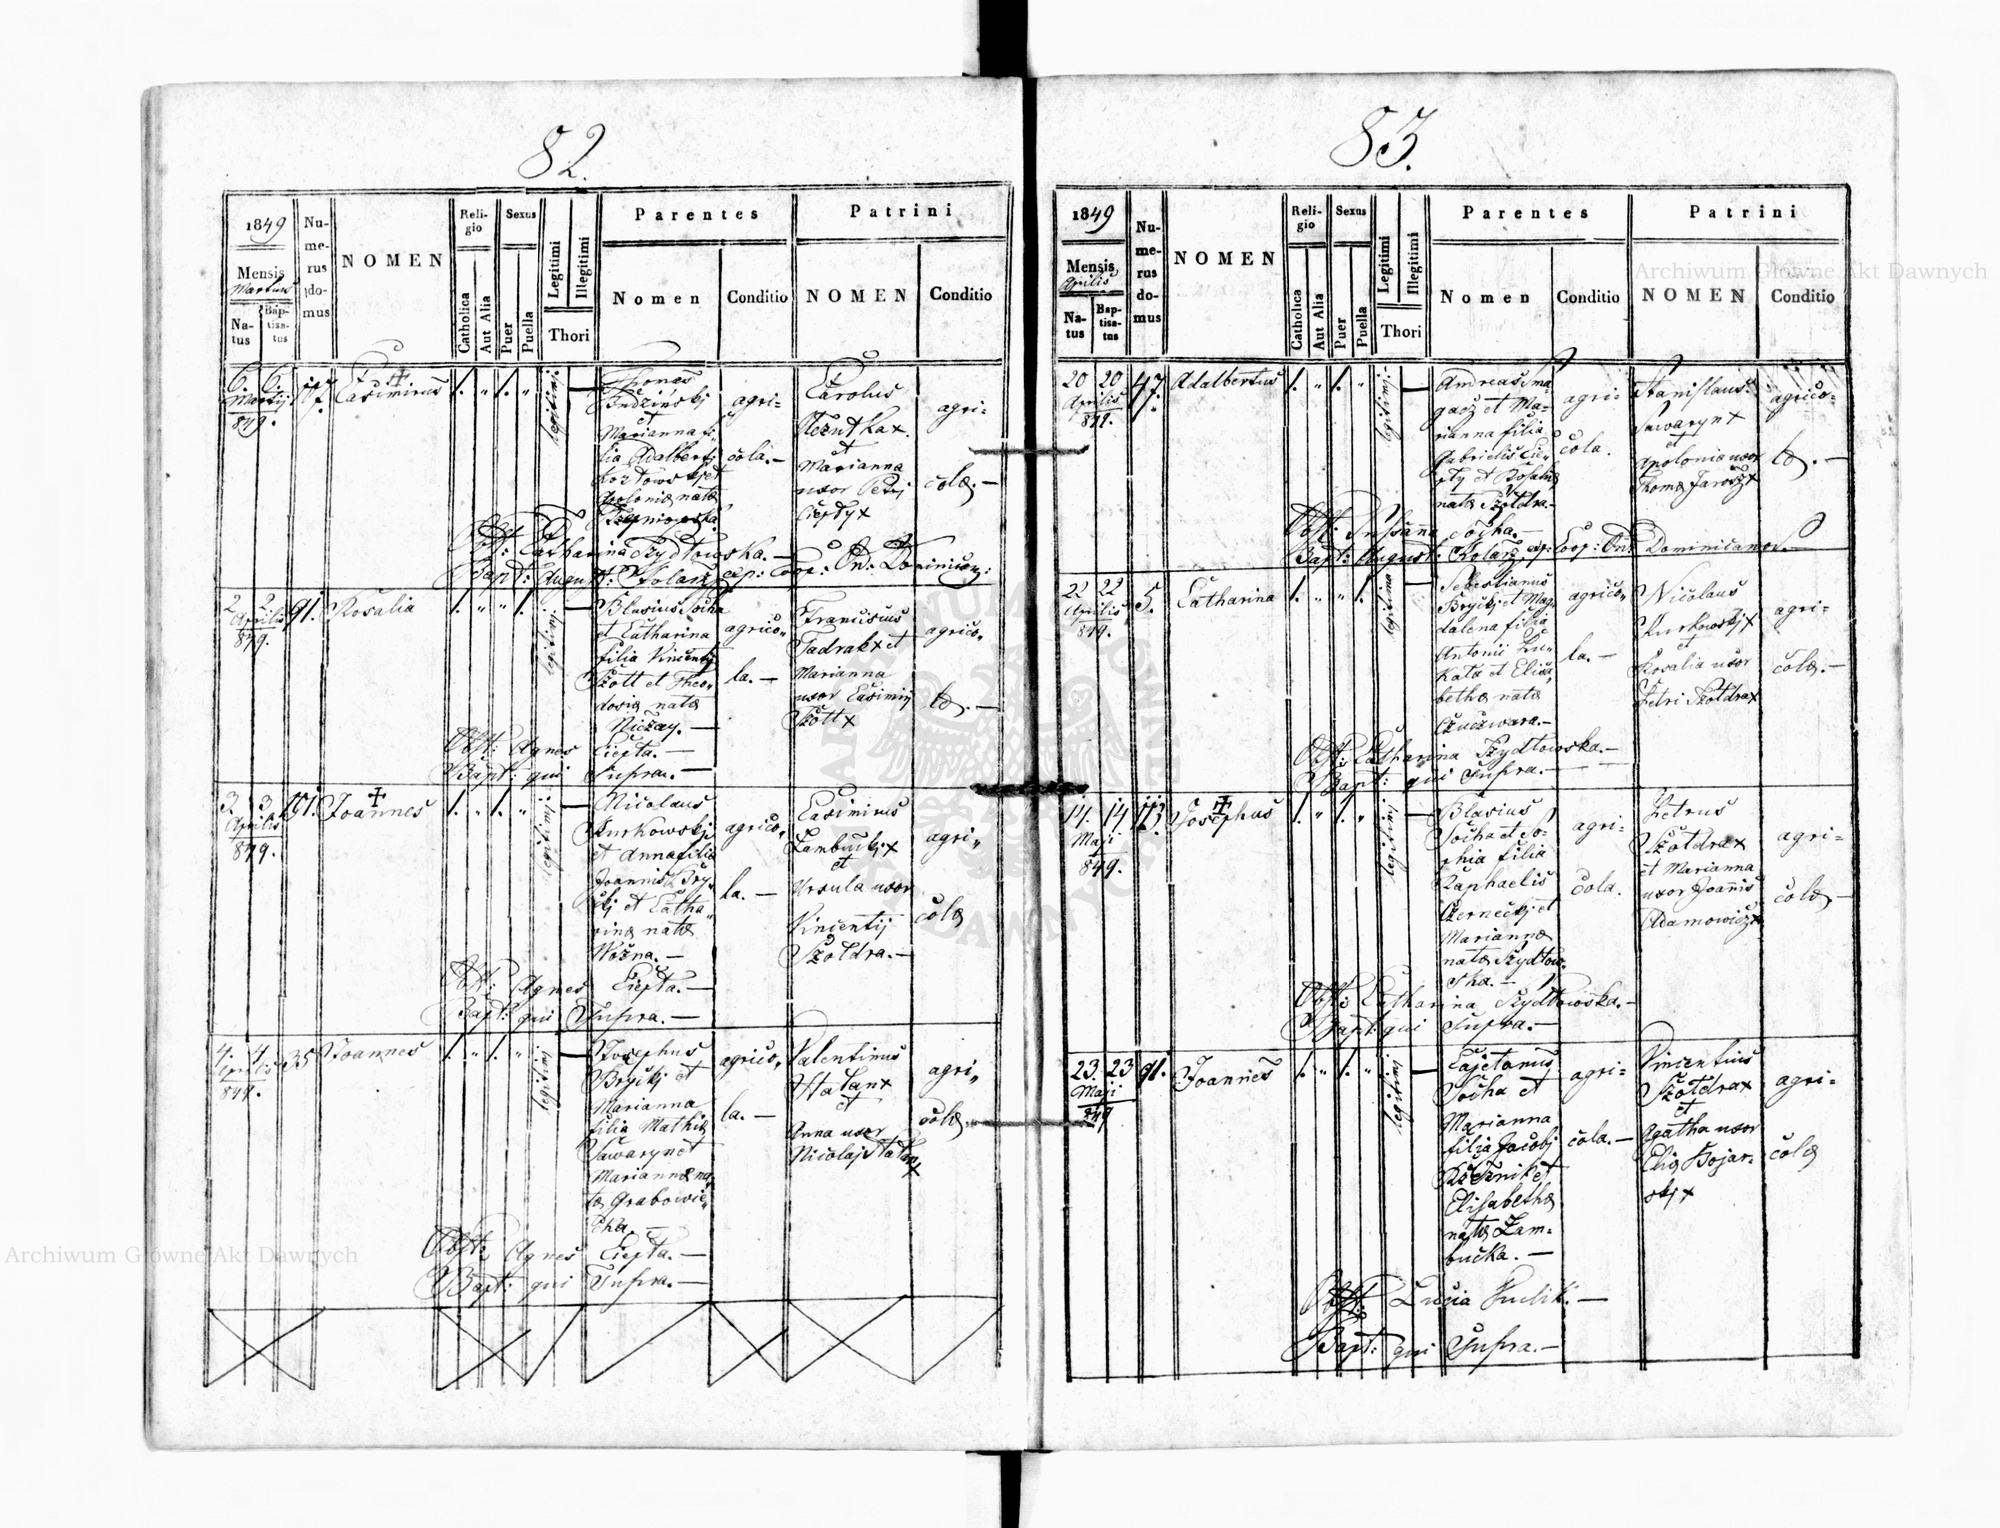 82.
1849
Mensis
Martius
Natus
Baptisatus
Numerus domus
NOMEN
Religio
Catholica
Aut Alia
Sexus
Puer
Puella
Legitimi
Illegitimi
Thori
Parentes
Nomen
Conditio
Patrini
NOMEN
Conditio
6. 6.
Martij
849.
Casimirus
1. „ 1. „
legitimi
Thomas
Budzinskj
et
Marianna fi-
lia Adalberti
Kozłowskj et
Apolonia nata
agri-
cola.—
Carolus
et
Marianna
uxor Petrj
Ciepły x
agri-
cola.—
Obst: Catharina Szydłowska.—
Bapt: August: Kolarz, exp: Coop: Ord: Dominican:
2 2
Aprilis
849.
91.
Rosalia
1. „ „ 1.
legitimi
Blasius Socha
et Catharina
filia Vincentij
Szott et Theo-
dosia nata
Niczay.—
agrico-
la.—
Franciscus
Tadrak x et
Marianna
uxor Casimirj
Szott x
agrico-
la.—
Obst: Agnes Ciepła.—
Bapt: qui Supra.—
3. 3
Aprilis
849.
101.
Joannes
1. „ 1. „
legitimi
Nicolaus
Kurkowskj
et Anna filia
Joannis Bry-
ckj et Catha-
rina nata
Wozna.—
agrico-
la.—
Casimirus
Zambuckj x
et
Ursula uxor
Vincentij
Szołdra.—
agri-
cola
Obst: Agnes Ciepła.—
Bapt: qui Supra.—
4. 4.
Aprilis
849.
35
Joannes
1. „ 1. „
legitimi
Josephus
Bryckj et
Marianna
filia Mathia
Sawaryn et
Marianna na-
ta Grabowie-
cka.—
agrico-
la.—
Valentinus
Hałan x
et
Anna uxor
Nicolaj Hałan
x
agri-
cola.
Obst: Agnes Ciepła.—
Bapt: qui Supra.—
83.
1849
Mensis
Aprilis
Natus
Baptisatus
Numerus domus
NOMEN
Religio
Catholica
Aut Alia
Sexus
Puer
Puella
Legitimi
Illegitimi
Thori
Parentes
Nomen
Conditio
Patrini
NOMEN
Conditio
20 20
Aprilis
849.
47.
Adalbertus
1. „ 1. „
legitimi
Andreas Sma-
gacz et Ma-
rianna filia
Gabrielis Cie-
pły et Rosalia
nata Szołdra.
agri-
cola.
Stanislaus
Sawaryn x
et
Apolonia uxor
Thoma Jarosz x
agrico-
la.—
Obst: Susanna Socha.—
Bapt: August: Kolarz, exp: Coop: Ord: Dominicanor.
22 22
Aprilis
849.
5.
Catharina
1. „ „ 1.
legitima
Sebastianus
Bryckj et Mag-
dalena filia
Antonii Łu-
kata et Elisa-
betha nata
Czuczwara.—
agrico-
la.—
Nicolaus
Kurkowskj x
et
Rosalia uxor
Petri Szołdra x
agri-
cola.—
Obst: Catharina Szydłowska.—
Bapt: qui Supra.—
14. 14
Maji
849.
113.
Josephus
1. „ 1. „
legitimi
Blasius
Socha et So-
phia filia
Raphaelis
Czerneckj et
Marianna
nata Szydłow-
ska.—
agri-
cola.
Petrus
Szołdra x
et Marianna
uxor Joannis
Adamowicz x
agri-
cola—
Obst: Catharina Szydłowska.—
Bapt: qui Supra.—
23. 23
Maji
849
91.
Joannes
1. „ 1. „
legitimi
Cajetanus
Socha et
Marianna
filia Jacobj
et
Elisabetha
nata Zam-
bucka.—
agri-
cola.—
Vincentius
Szołdra x
et
Agatha uxor
Elia Bojar-
skj x
agri-
cola
Obst: Lucia Pudlik.—
Bapt: qui Supra.—
Archiwum Główne Akt Dawnych
Archiwum Główne Akt Dawnych
ARCHIWUM GŁÓWNE AKT DAWNYCH